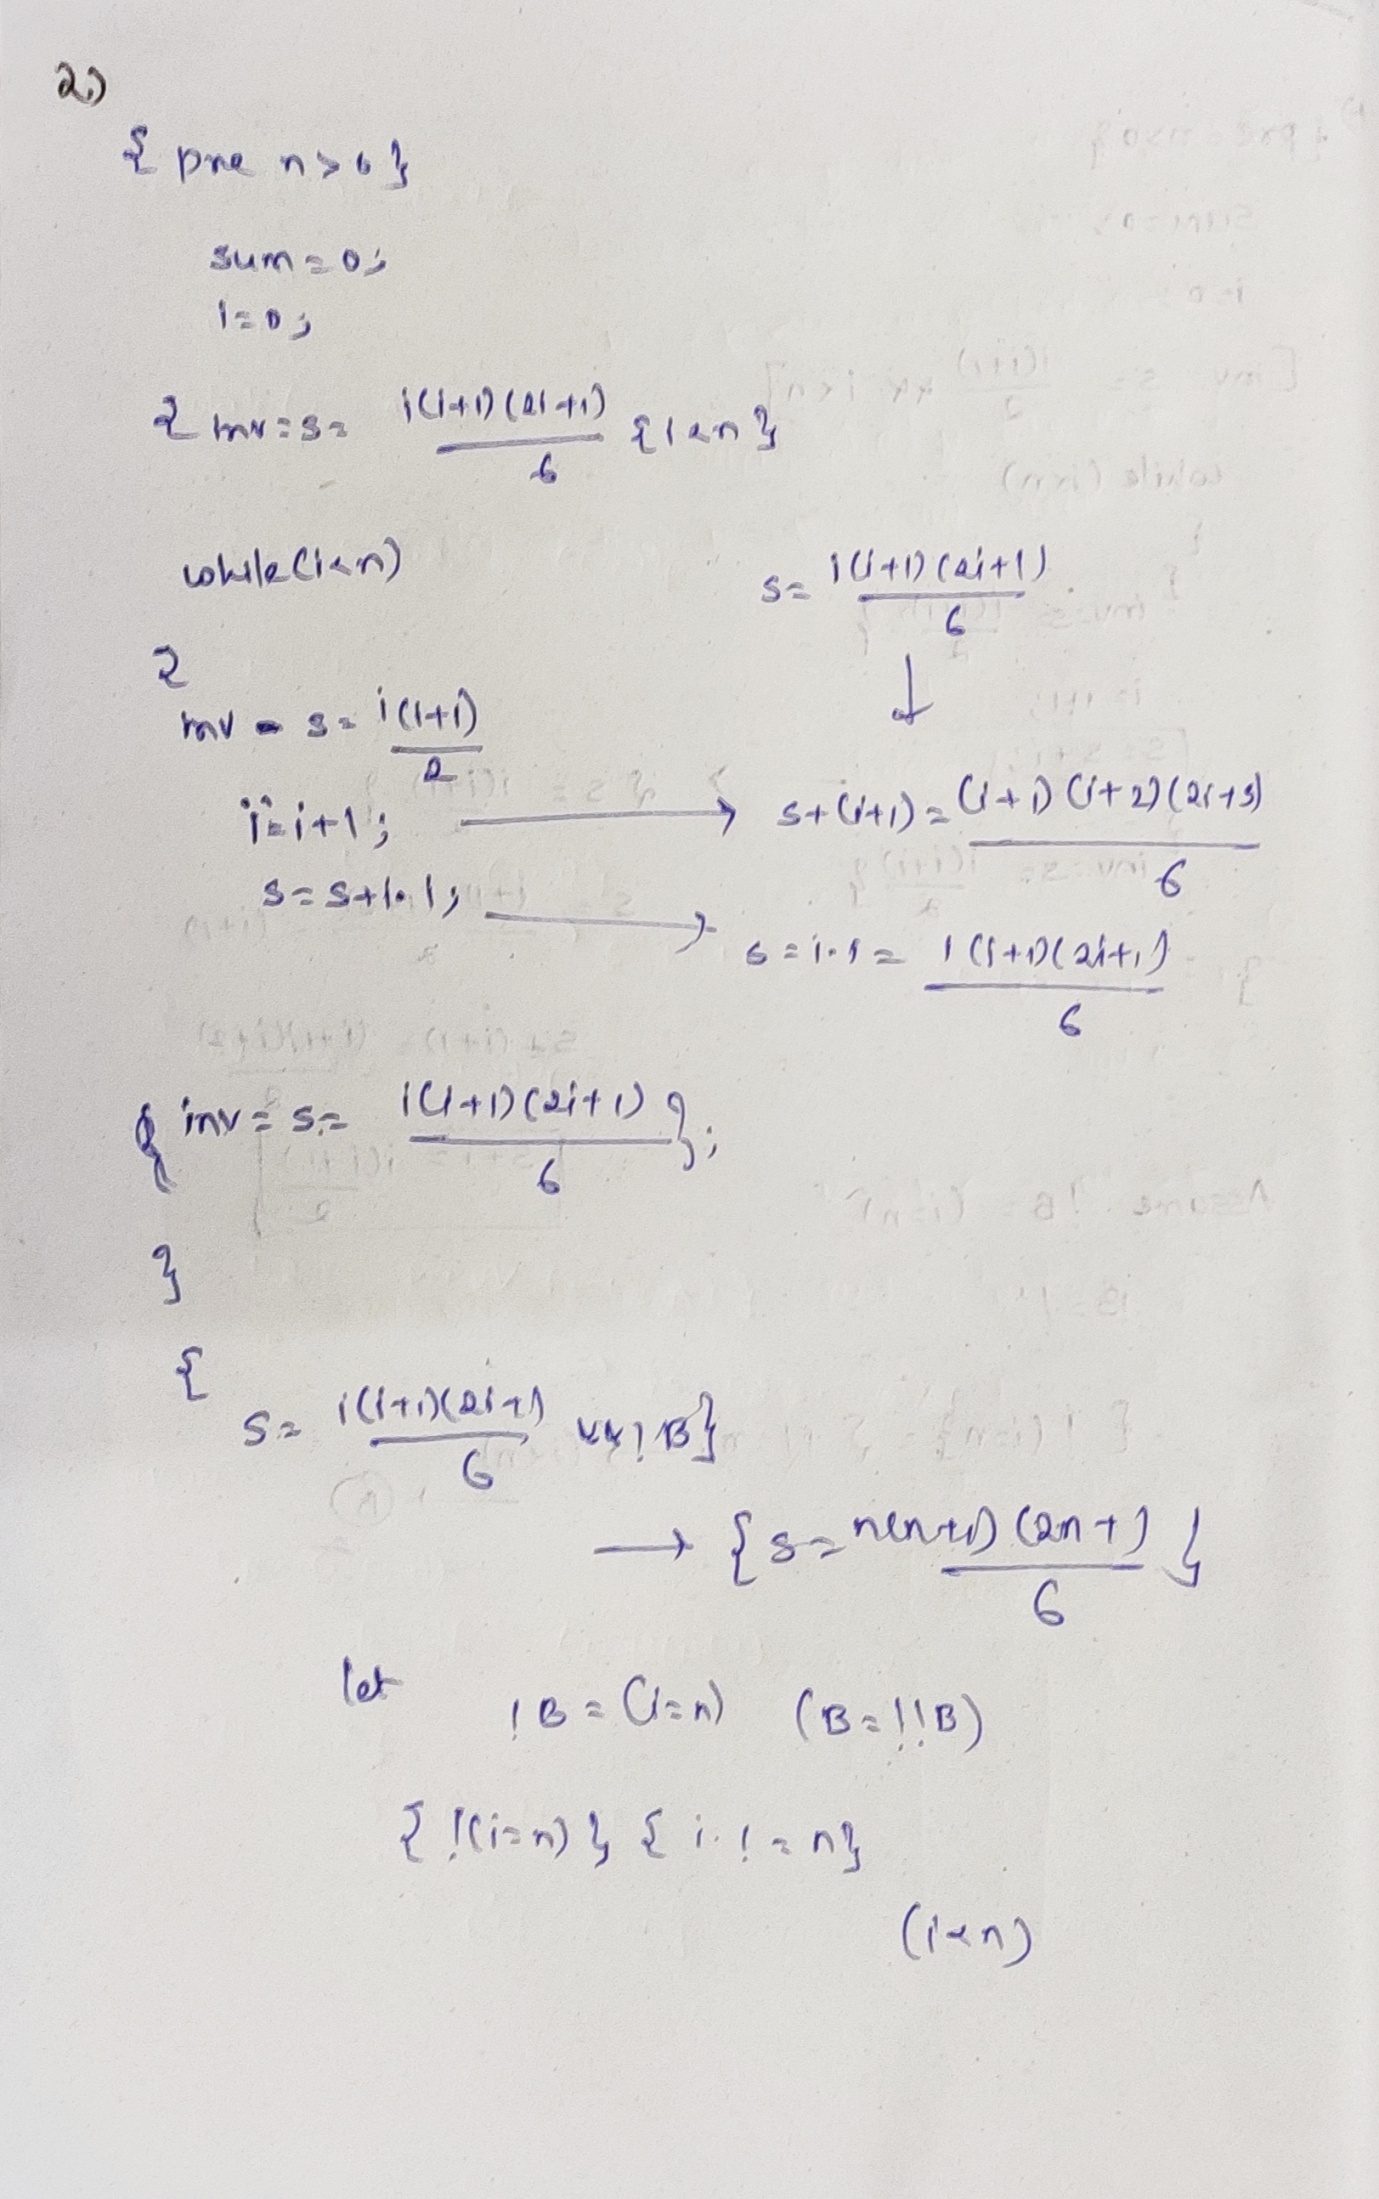 2)
{ pre n>0}
sum=0;
i=0;
{ inv=s= i(i+1)(2i+1)/6 {i<n}
while(i<n)
s= i(i+1)(2i+1)/6
{
inv = s= i(i+1)/2
↓
i=i+1; → s+(i+1)= (i+1)(i+2)(2i+3)/6
s=s+i.i; → s=i.i= i(i+1)(2i+1)/6
{ inv= s= i(i+1)(2i+1)/6 };
}
{
s= i(i+1)(2i+1)/6 && !B}
→ {s= n(n+1)(2n+1)/6 }
let !B=(i=n) (B=!!B)
{ !(i=n)} { i.!=n}
(i<n)